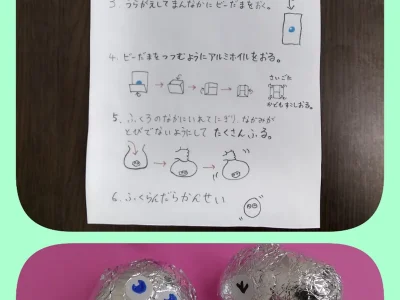 3. うらがえしてまんなかにビーだまをおく。
4. ビーだまをつつむようにアルミホイルをおる。
さいごに
かどもすこしおる。
5. ふくろのなかにいれてにぎり、なかみが
とびでないようにして たくさんふる。
6. ふくらんだらかんせい